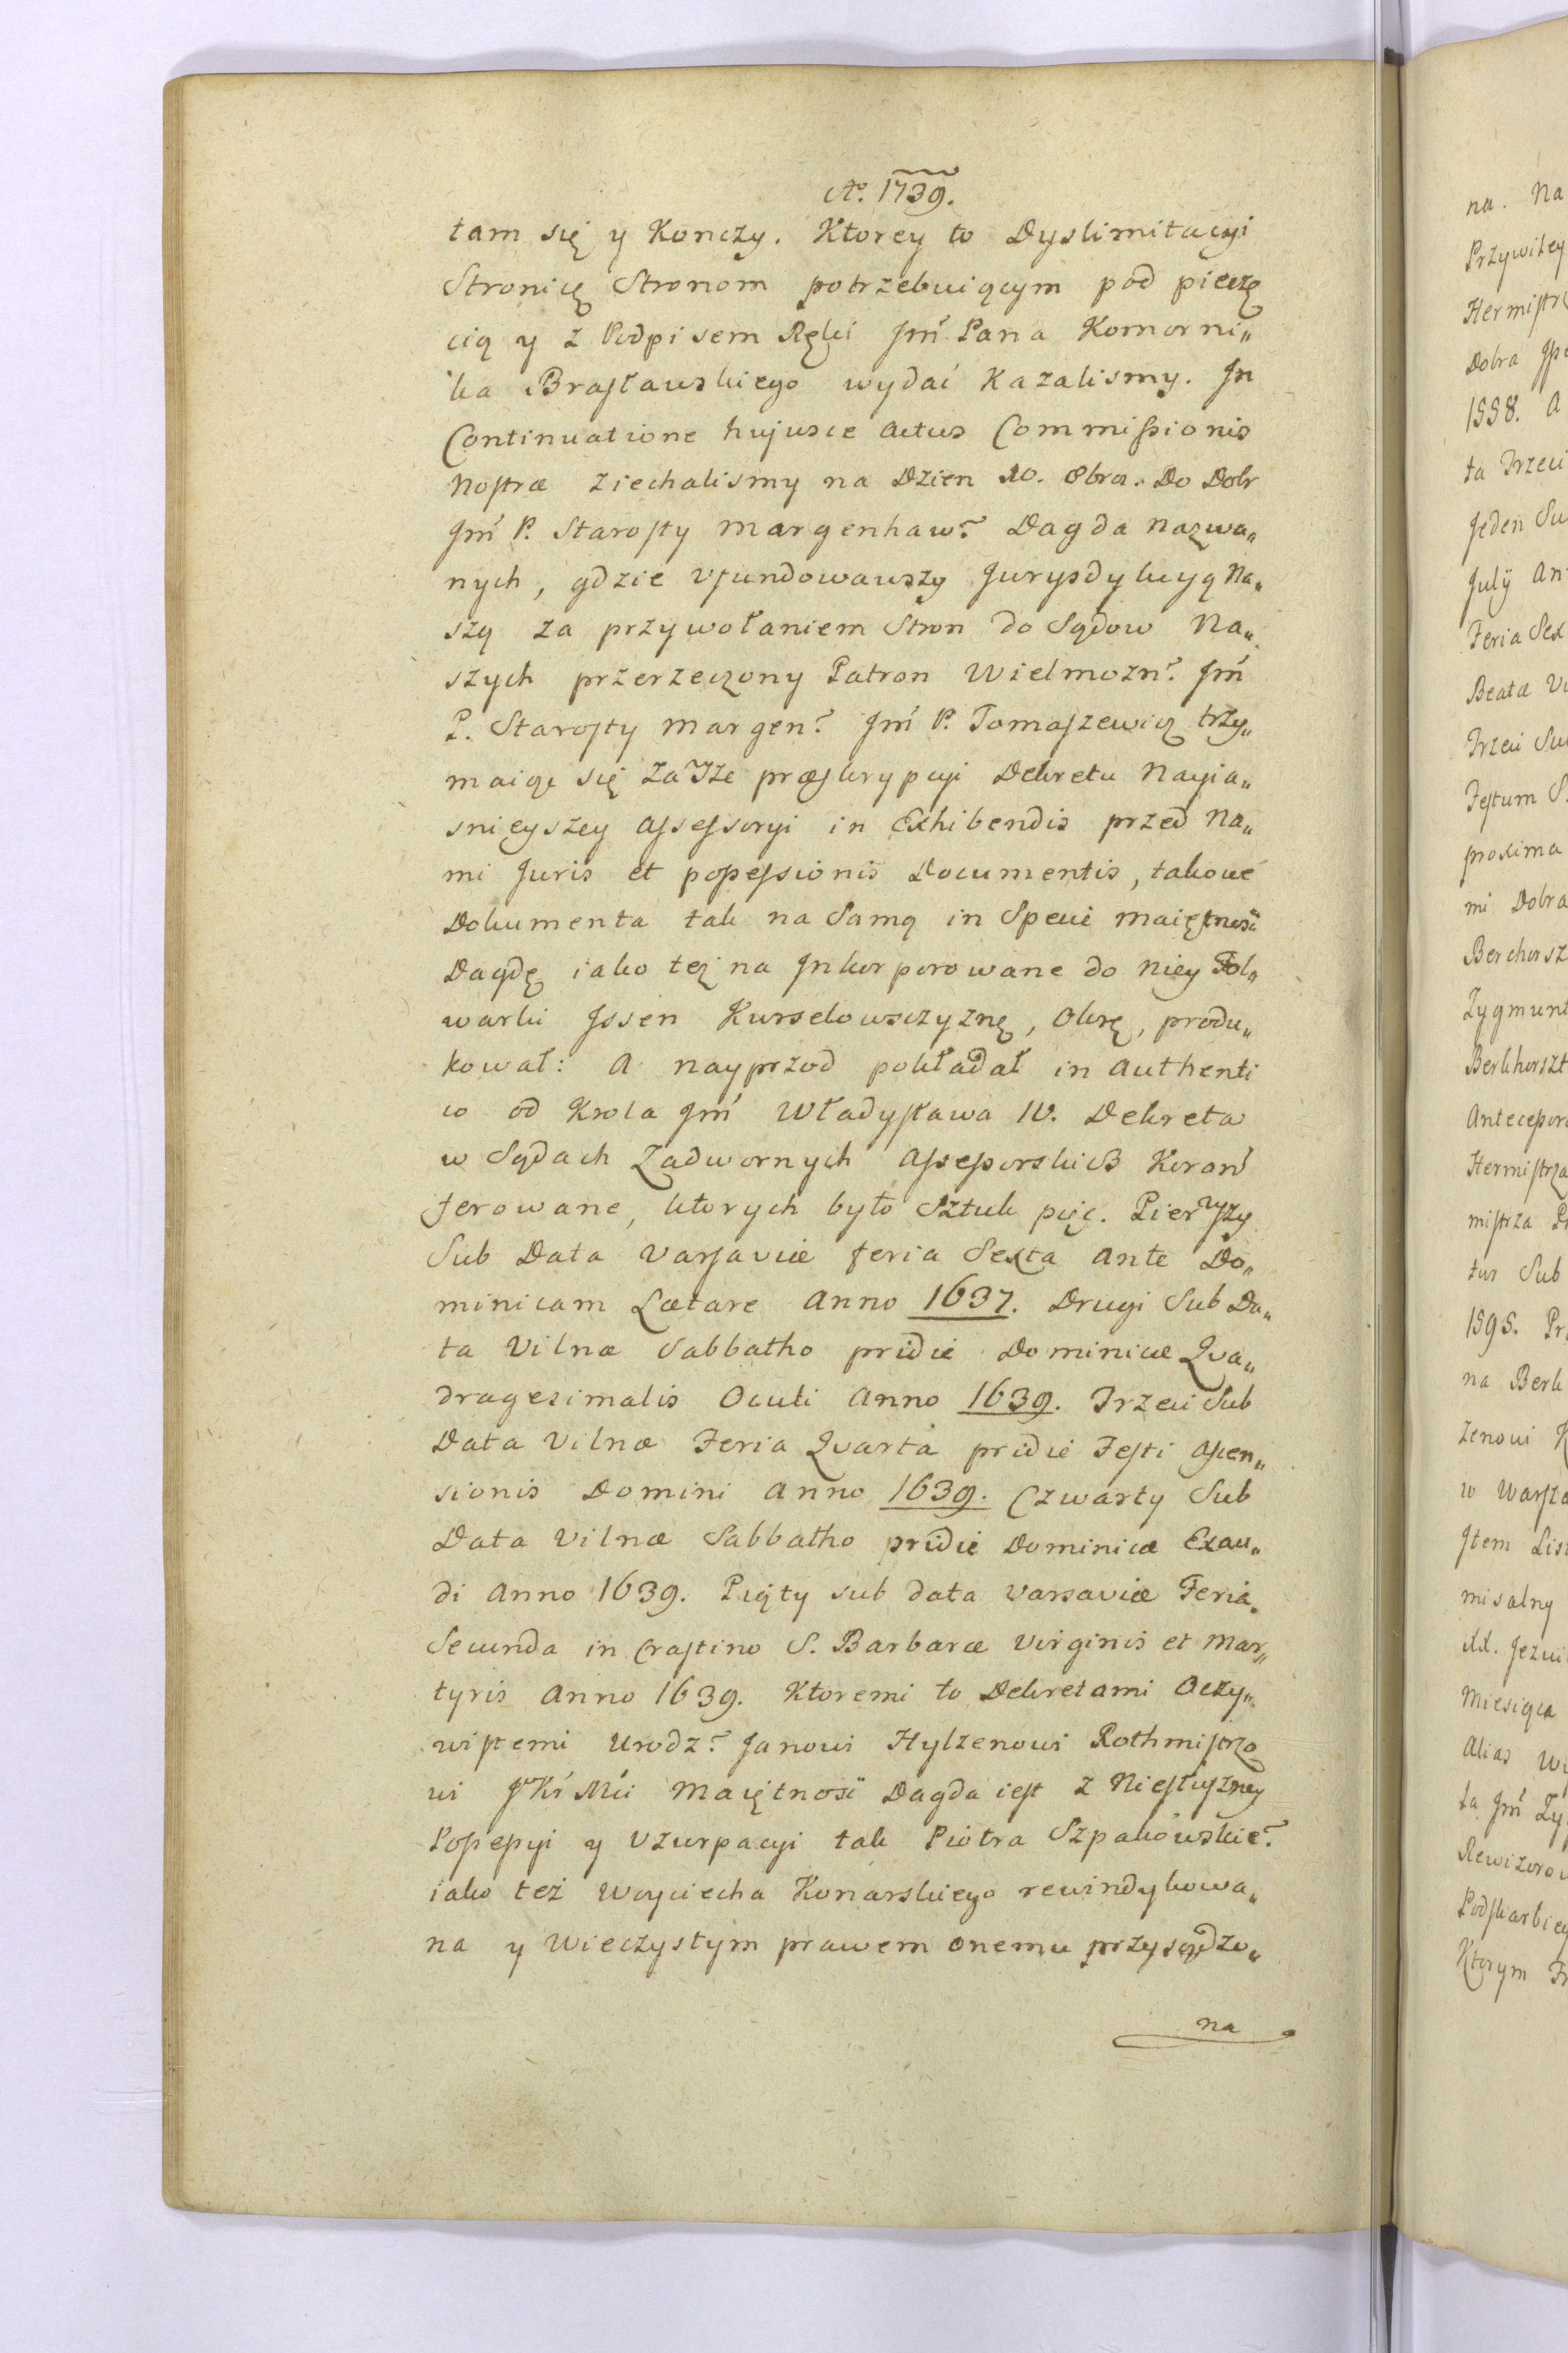 Aᵒ. 1739.
tam się y Kończy. Ktorey to Dyslimitacyi
Stronicę Stronom potrzebuiącym pod pieczę
cią y z Podpisem Ręki Jm̃ Pana Komorni„
ka Brasławskiego wydać Kazalismy. In
Continuatione hujusce actus Commissionis
Nostræ ziechalismy na Dzien 10. 8bra. Do Dobr
Jm̃ P. Starosty Margenhaw? Dagda nazwa„
nych, gdzie vfundowawszy Jurysdykcyą Na„
szą za przywołaniem Stron do Sądow Na„
szych przerzeczony Patron Wielmozn? Jm̃
P. Starosty Margen? Jm̃ P. Tomaszewicz trzy„
maiąc się zaTze præskrypcyi Dekretu Nayia„
snieyszey Assessoryi in Exhibendis przed Na„
mi Juris et possessionis Documentis, takowe
Dokumenta tak na Samą in Specie maiętność
Dagdę iako też na Inkorporowane do niey Fol„
warki Issen Kurselowszczyznę, Okrę, produ„
kował: A nayprzod pokładał in Authenti
co od Krola Jm̃ Władysława IV. Dekreta
w Sądach Zadwornych Assessorskich Koron̄
ferowane, ktorych było Sztuk pięć. Pierwszy
Sub Data Varsaviæ feria Sexta ante Do„
minicam Lætare Anno 1637. Drugi Sub Da„
ta Vilnæ Sabbatho pridie Dominicæ Qva„
dragesimalis Oculi Anno 1639. Trzeci Sub
Data Vilnæ Feria Qvarta pridie Festi Ascen„
sionis Domini Anno 1639. Czwarty Sub
Data Vilnæ Sabbatho pridie Dominicæ Exau„
di Anno 1639. Piąty sub data Varsaviæ Feria
Secunda in Crastino S. Barbaræ Virginis et Mar„
tyris Anno 1639. Ktoremi to Dekretami Oczy„
wistemi Urodz? Janowi Hylzenowi Rothmistrzo
wi JKr̃ Mći Maiętność Dagda iest z Niesłuszney
Possessyi y Vzurpacyi tak Piotra Szpakowskie?
iako też Woyciecha Konarskiego rewindykowa„
na y Wieczystym prawem onemu przysądzo„
na
na. Na
Przywiley
Hermistrz
Dobra
1558. A
ta Trzeci
Jeden Su
July An
Feria Sex
Beatæ Vi
Trzeci Su
Festum S.
proxima
mi Dobra
Berchorsz
Zygmunt
Berkhorszt
Antecessor
Hermistrza
mistrza P
tur Sub
1595. Pr
na Berk
zenowi K
w Warsza
Item List
misalny
XX. Jezui
Miesiąca
Alias Wi
ta Jm̃ Zy
Rewizorow
Podskarbieg
Ktorym Fr